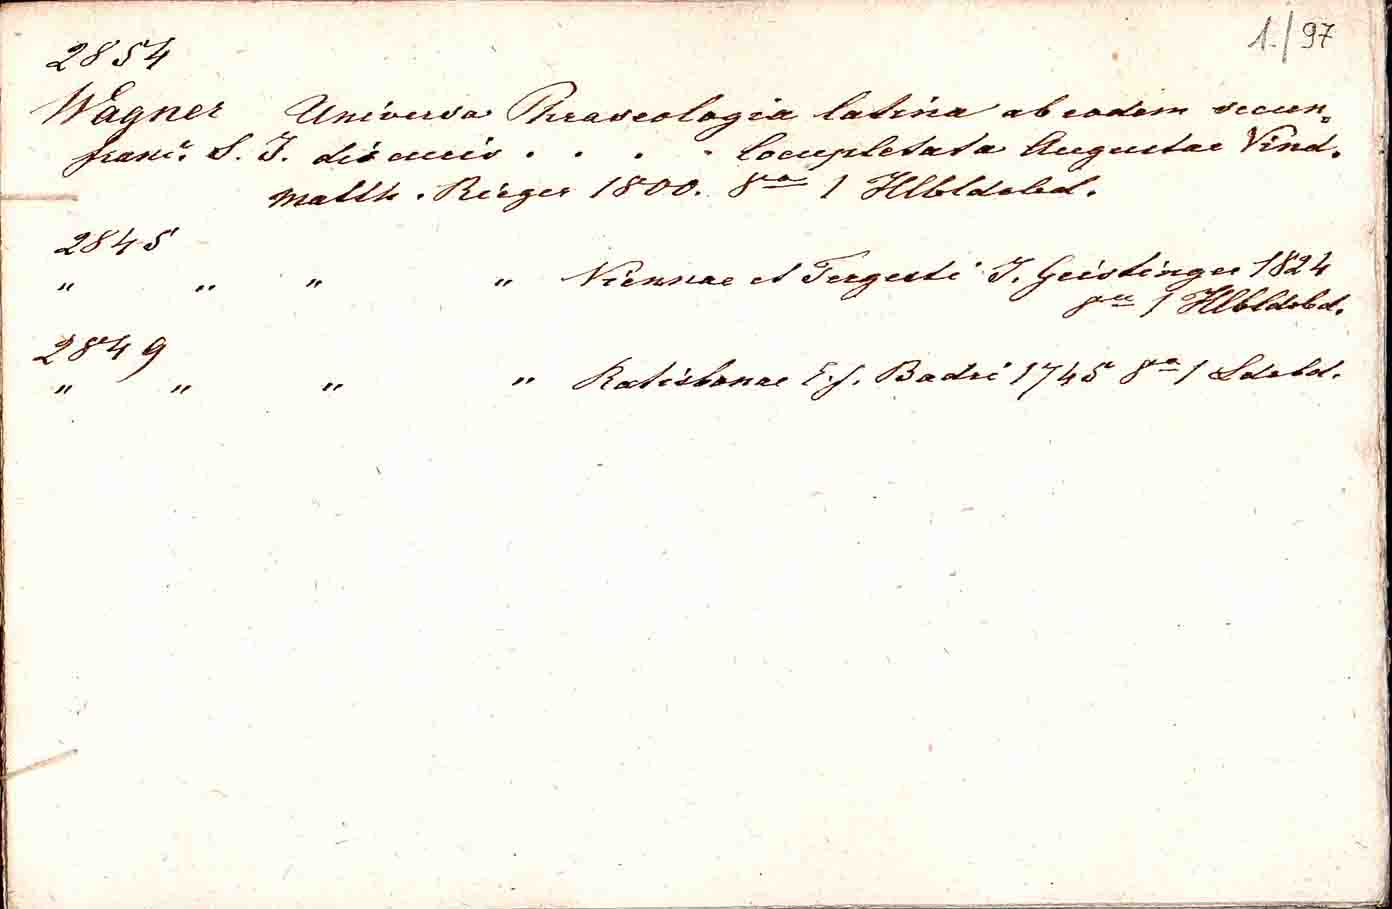 1./97
2854
Wagner Universa Phraseologia latina ab eodem secun=
franc. S. J. dis curis . . . . locupletata Augustae Vind.
Matth. Rieger 1800. 8va 1 Hlbldrbd.
2845
" " " " Viennae et Tergesti J. Geistinger 1824
8va 1 Hlbldrbd.
2849
" " " " Ratisbonae E. f. Badri 1745 8va 1 Ldrbd.